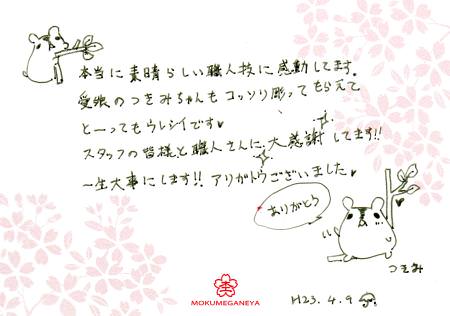 本当に素晴らしい職人技に感動してます。
愛娘のつきみちゃんもコッソリ彫ってもらえて
とーってもウレシイです♥
スタッフの皆様と職人さんに大感謝してます!!
一生大事にします!! アリがトウございました♥
ありがとう
つきみ
MOKUMEGANEYA
H23.4.9